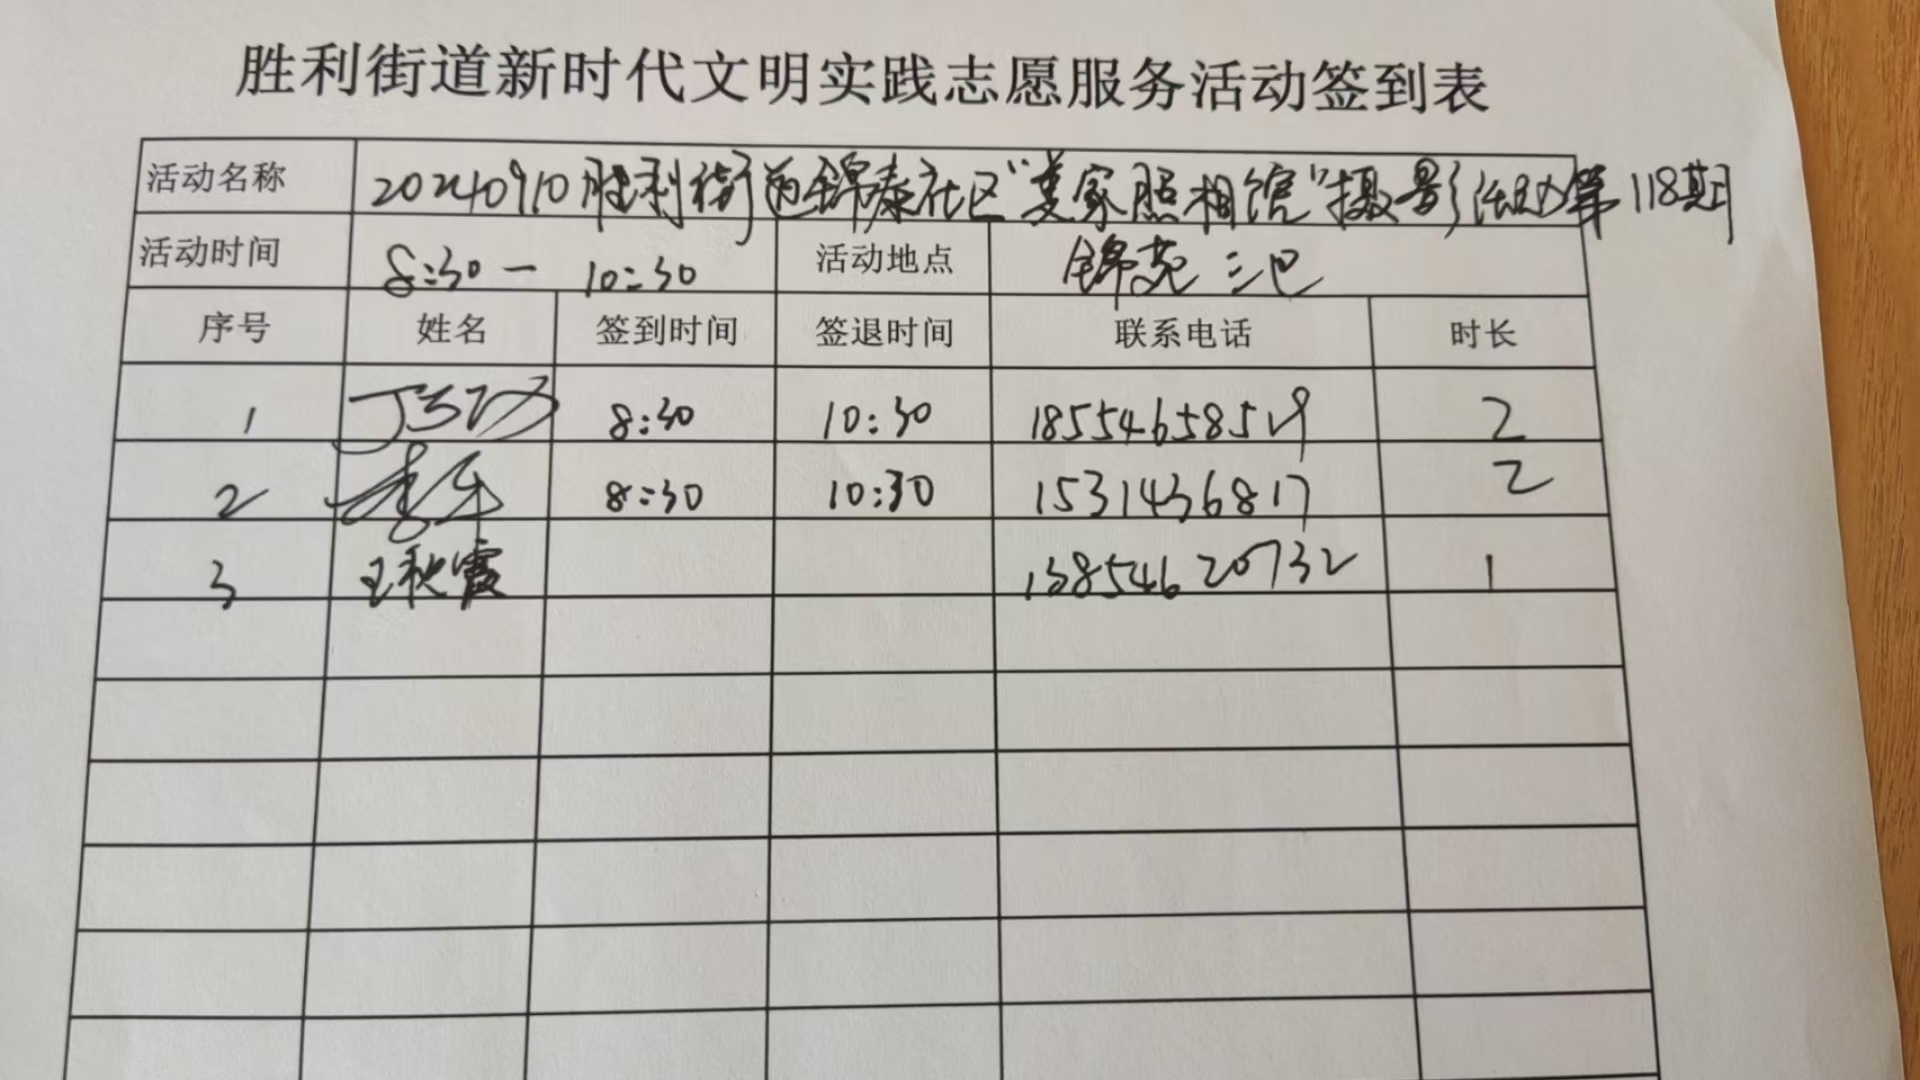 胜利街道新时代文明实践志愿服务活动签到表
活动名称 20240910胜利街道锦泰社区“美家照相馆”摄影活动第118期
活动时间 8:30一 10:30 活动地点 锦苑三区
序号 姓名 签到时间 签退时间 联系电话 时长
1 8:30 10:30 18554658519 2
2 8:30 10:30 1531436817 2
3 王秋霞 13854620732 1